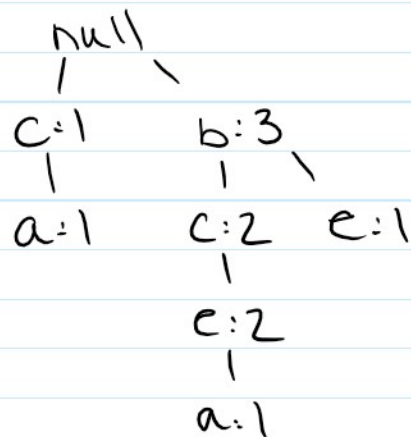 null
c:1 b:3
a:1 c:2 e:1
e:2
a:1